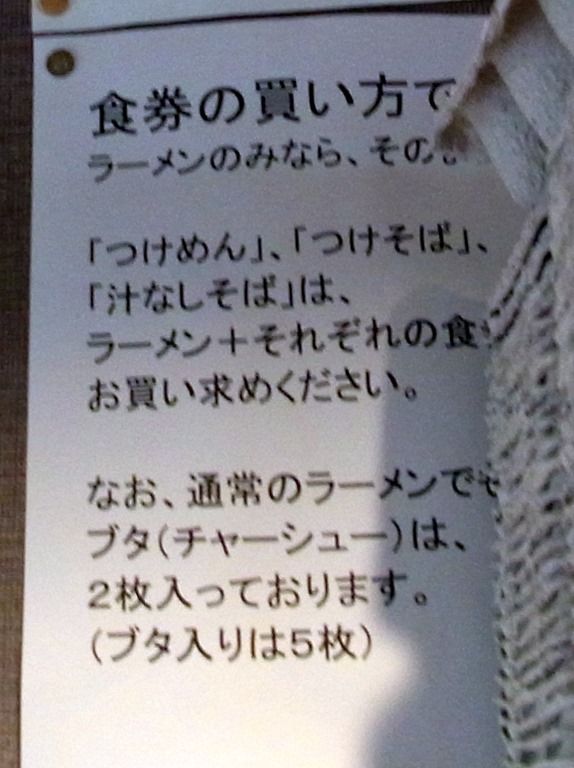 食券の買い方で
ラーメンのみなら、その
「つけめん」、「つけそば」、
「汁なしそば」は、
ラーメン＋それぞれの食
お買い求めください。
なお、通常のラーメンで
ブタ（チャーシュー）は、
２枚入っております。
（ブタ入りは５枚）